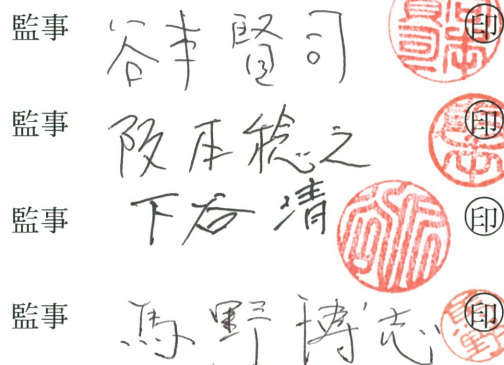 監事 谷本賢司 印
監事 阪本稔之 印
監事 下谷清 印
監事 馬野博志 印